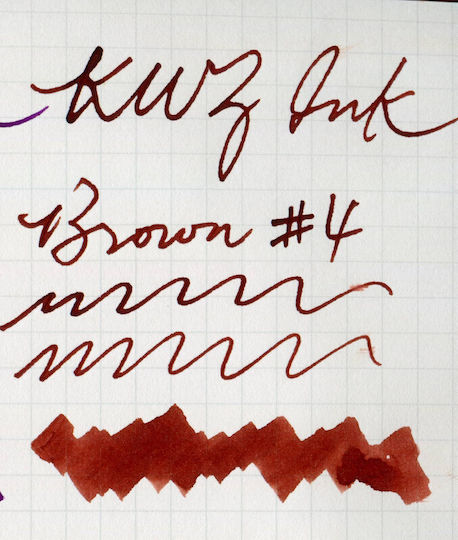 KWZ Ink
Brown #4